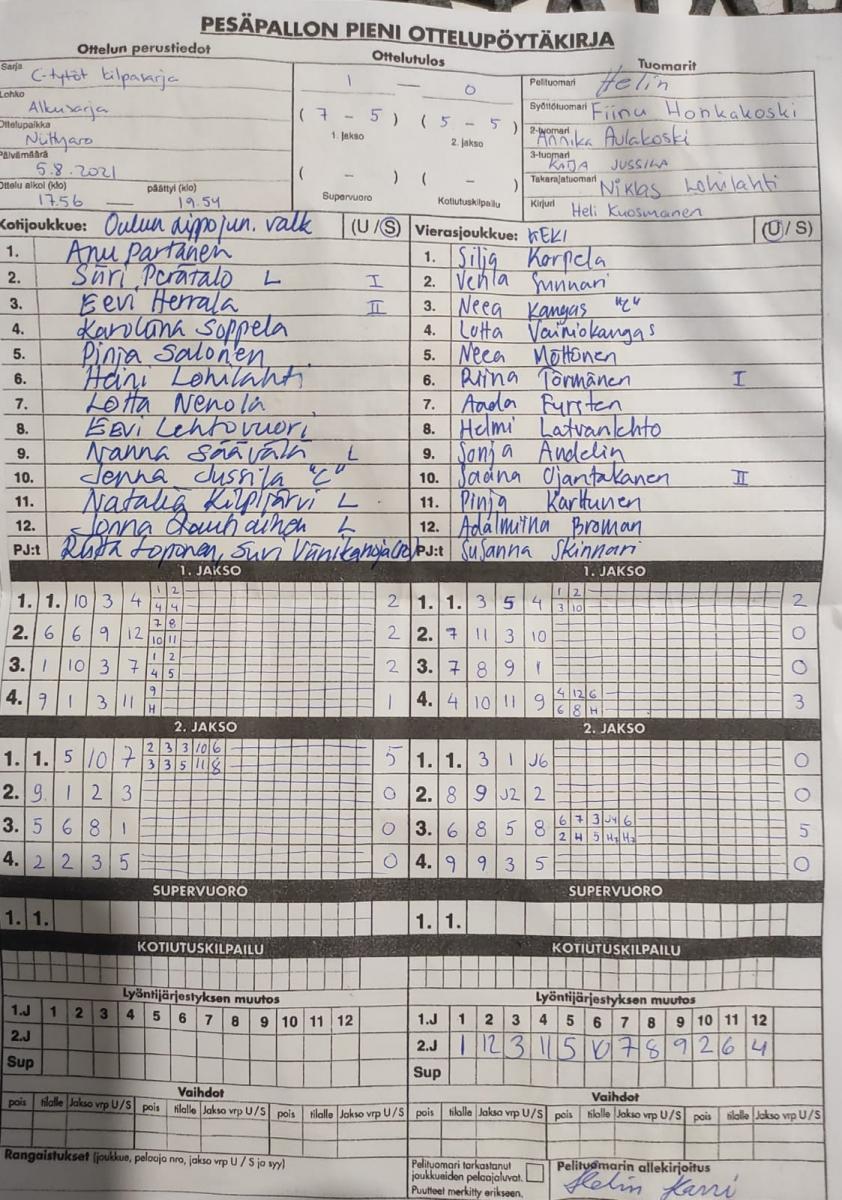 PESÄPALLON PIENI OTTELUPÖYTÄKIRJA
Ottelun perustiedot
Sarja C-tytöt kilpasarja
Lohko Alkusarja
Ottelupaikka
Päivämäärä 5.8.2021
Ottelu alkoi (klo) päättyi (klo)
17.56 — 19.54
Ottelutulos
1 — 0
( 7 - 5 ) ( 5 - 5 )
1. jakso 2. jakso
( - ) ( - )
Supervuoro Kotiutuskilpailu
Tuomarit
Pelituomari Helin
Syöttötuomari Fiinu Honkakoski
2-tuomari Annika Aulakoski
3-tuomari KAIJA JUSSILA
Takarajatuomari Niklas Lohilahti
Kirjuri Heli Kuosmanen
Kotijoukkue: Oulun Lippojun. valk (U / S)
1. Anu Partanen
2. Siiri Perätalo L I
3. Eevi Herrala II
4. Karoliina Soppela
5. Pinja Salonen
6. Heini Lohilahti
7. Lotta Nenola
8. Eevi Lehtovuori
9. Nanna Säävälä L
10. Jenna Jussila "C"
11. Natalia Kilpijärvi L
12. Jonna L
PJ:t Riitta Loponen, Suvi
Vierasjoukkue: KEKI (U / S)
1. Silja Korpela
2. Venla Sunnari
3. Neea Kangas "C"
4. Lotta Vainiokangas
5. Neea Möttönen
6. Riina Törmänen I
7. Aada Fyrsten
8. Helmi Latvanlehto
9. Sonja Andelin
10. Saana Ojantakanen II
11. Pinja Karttunen
12. Adalmiina Broman
PJ:t Susanna Skinnari
1. JAKSO 1. JAKSO
1. 1. 10 3 4 1 2 2
4 4
2. 6 6 9 12 7 8 2
10 11
3. 1 10 3 7 1 2 2
4 5
4. 9 1 3 11 9 1
H
1. 1. 3 5 4 1 2 2
3 10
2. 7 11 3 10 0
3. 7 8 9 1 0
4. 4 10 11 9 4 12 6 3
6 8 H
2. JAKSO 2. JAKSO
1. 1. 5 10 7 2 3 3 10 6 5
3 3 5 11 8
2. 9 1 2 3 0
3. 5 6 8 1 0
4. 2 2 3 5 0
1. 1. 3 1 J6 0
2. 8 9 J2 2 0
3. 6 8 5 8 6 7 3 J4 6 5
2 H 5 H2 H2
4. 9 9 3 5 0
SUPERVUORO SUPERVUORO
1. 1. 1. 1.
KOTIUTUSKILPAILU KOTIUTUSKILPAILU
Lyöntijärjestyksen muutos
1.J 1 2 3 4 5 6 7 8 9 10 11 12
2.J
Sup
Lyöntijärjestyksen muutos
1.J 1 2 3 4 5 6 7 8 9 10 11 12
2.J 1 12 3 11 5 10 7 8 9 2 6 4
Sup
Vaihdot
pois tilalle Jakso vrp U/S pois tilalle Jakso vrp U/S pois tilalle Jakso vrp U/S
Vaihdot
pois tilalle Jakso vrp U/S pois tilalle Jakso vrp U/S pois tilalle Jakso vrp U/S
Rangaistukset (joukkue, pelaaja nro, jakso vrp U / S ja syy)
Pelituomari tarkastanut
joukkueiden pelaajaluvat.
Puutteet merkitty erikseen.
Pelituomarin allekirjoitus
Helin Harri